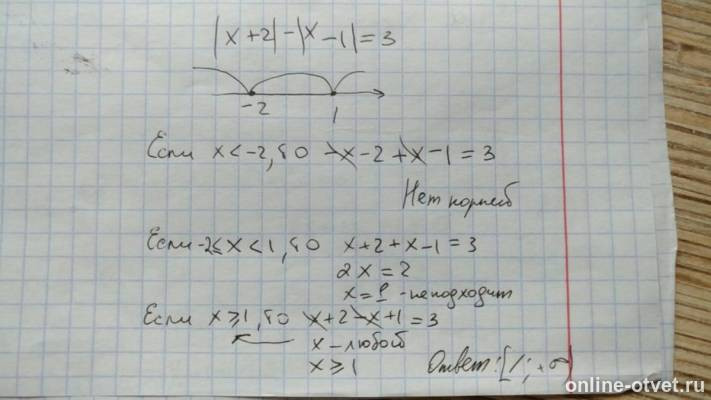 |x+2|-|x-1|=3
-2 1
Если x<-2, то -x-2+x-1=3
Нет корней
Если -2≤x<1, то x+2+x-1=3
2x=2
x=1 - не подходит
Если x≥1, то x+2-x+1=3
x - любое
x≥1
Ответ: [1; +∞)
online-otvet.ru